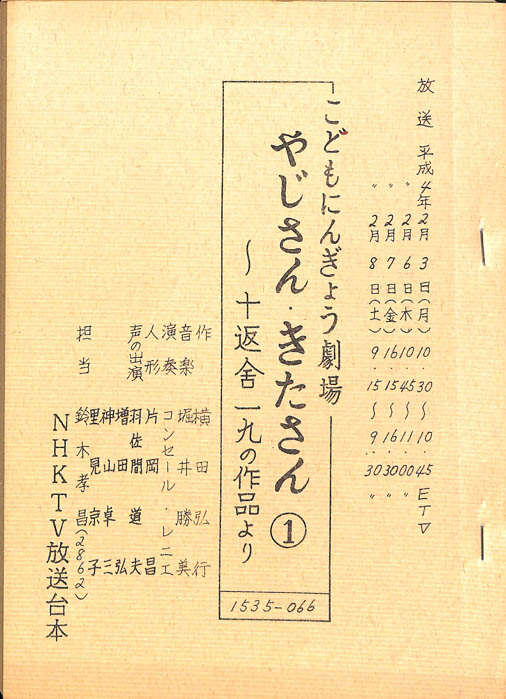 放送 平成4年2月3日(月) 10.30〜10.45 ETV
〃 2月6日(木) 10.45〜11.00 〃
〃 2月7日(金) 16.15〜16.30 〃
〃 2月8日(土) 9.15〜9.30 〃
こどもにんぎょう劇場
やじさん・きたさん ①
〜十返舎一九の作品より
1535-066
作 横田弘行
音楽 堀井勝美
演奏 コンセール・レニエ
人形 片岡昌
声の出演 羽佐間道夫
増田弘
神山卓三
里見京子
担当 鈴木孝昌(2862)
NHKTV放送台本